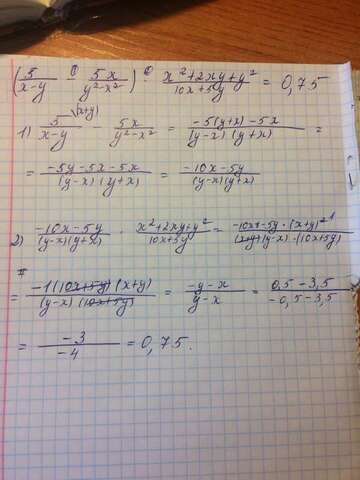 (5/(x-y) - 5x/(y²-x²)) : (x²+2xy+y²)/(10x+5y) = 0,75
1) 5\(x+y)/(x-y) - 5x/(y²-x²) = (-5(y+x)-5x)/((y-x)(y+x)) =
= (-5y-5x-5x)/((y-x)(y+x)) = (-10x-5y)/((y-x)(y+x))
2) (-10x-5y)/((y-x)(y+x)) · (x²+2xy+y²)/(10x+5y) = (-10x-5y·(x+y)²¹)/((x+y)(y-x)·(10x+5y))
= (-1(10x+5y)(x+y))/((y-x)(10x+5y)) = (-y-x)/(y-x) = (0,5-3,5)/(-0,5-3,5)
= (-3)/(-4) = 0,75.